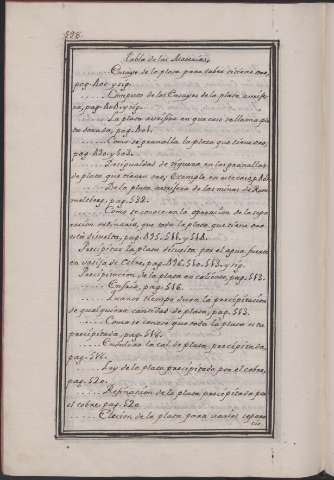 Tabla de las Materias
...... Ensaye de la plata para saber si tiene oro,
pag. y sig.
...... Computo de los Ensayes de la plata aurife-
ra, pag. y sig.
...... La plata aurifera en que caso se llama pla-
ta dorada, pag.
...... Como se granalla la plata que tiene oro,
pag.
...... Desigualdad de riqueza en las granallas
de plata que tienen oro; Exemplo en esta materia, pag.
...... De la plata aurifera de las minas de Ram-
melsberg, pag. 532.
...... Como se conoce en la operacion de la sepa-
racion ordinaria, que toda la plata que tiene oro
está disuelta, pag.
Precipitar la plata disuelta por el agua fuerte
en vasija de Cobre, pag. y sig.
Precipitacion de la plata en caliente, pag. 513.
...... Ensaie, pag. 516.
...... Quanto tiempo dura la precipitacion
de qualquiera cantidad de plata, pag. 513.
...... Como se conoce que toda la plata está
precipitada, pag. 514.
...... Endulzar la cal de plata precipitada,
pag.
...... Ley de la plata precipitada por el cobre,
pag. 520.
...... Refinacion de la plata precipitada por
el cobre, pag. 520.
...... Elecion de la plata para varias separa-
cio